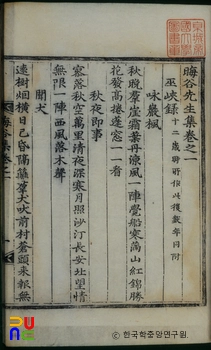 晦谷先生集卷之一
巫峽錄 十二歲時所作以後數年同附
詠巖楓
秋晚羣崖霜葉丹涼風一陣覺船寒滿山紅錦勝
花發高捲蓬窓一一看
秋夜即事
寥落秋空萬里清夜深寒月照沙汀長安北望情
無限一陣西風落木聲
聞犬
遠樹烟橫日已昏隔籬羣犬吠前村蒼頭來報無
晦谷集卷之一
ⓒ한국학중앙연구원